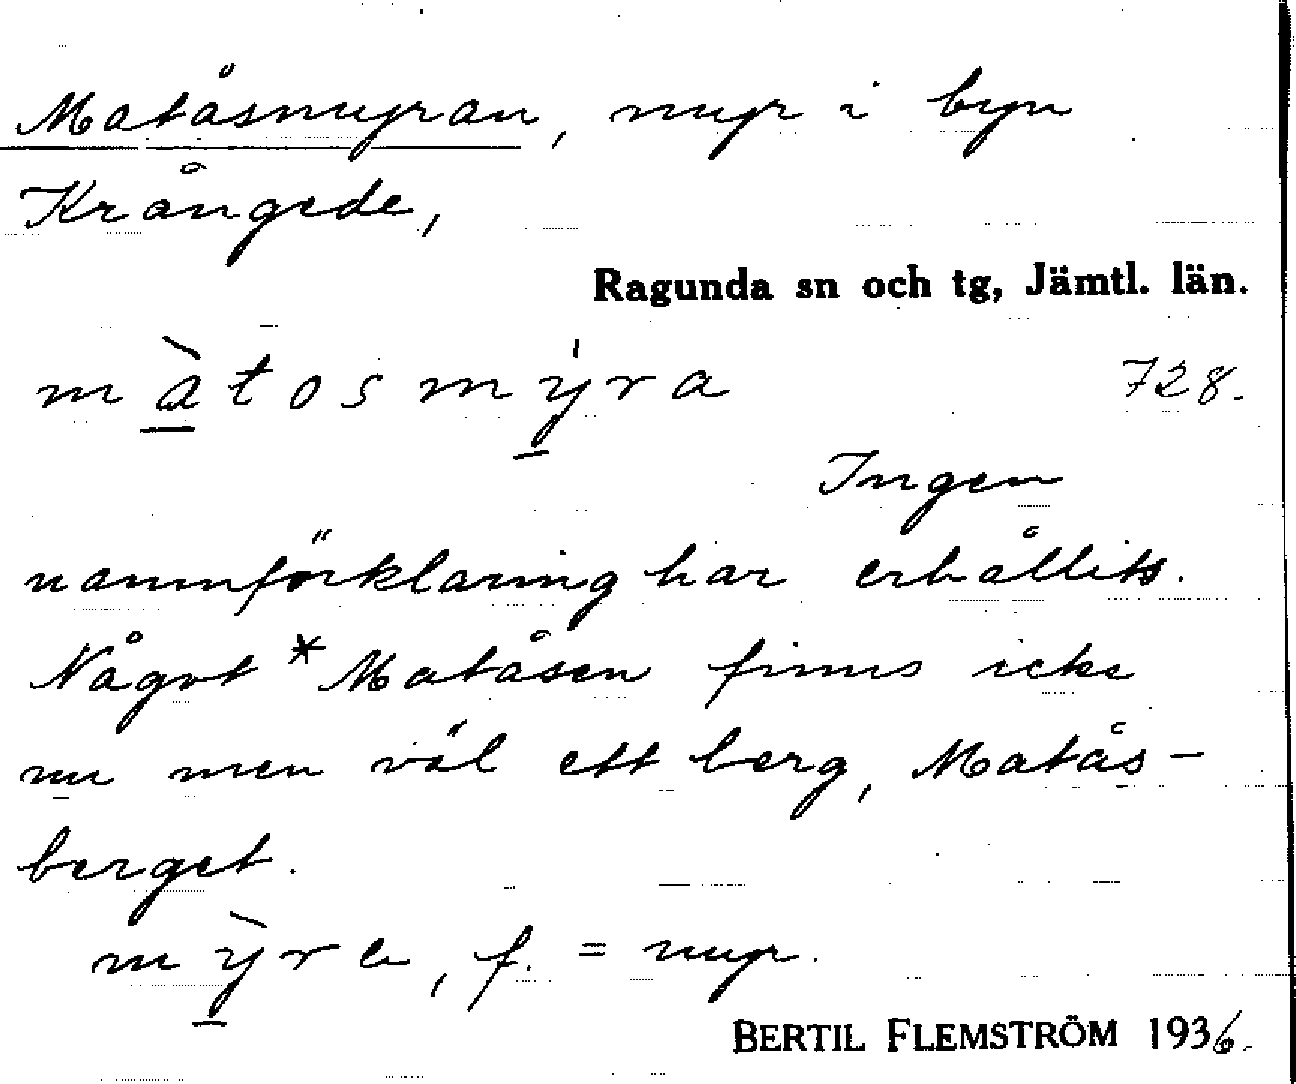 Matåsmyran, myr i byn
Krångede,
Ragunda sn och tg, Jämtl. län.
màtosmýra 728.
Ingen
namnförklaring har erhållits.
Något *Matåsen finns icke
nu men väl ett berg, Matås-
berget.
mỳra, f. = myr.
BERTIL FLEMSTRÖM 1936.